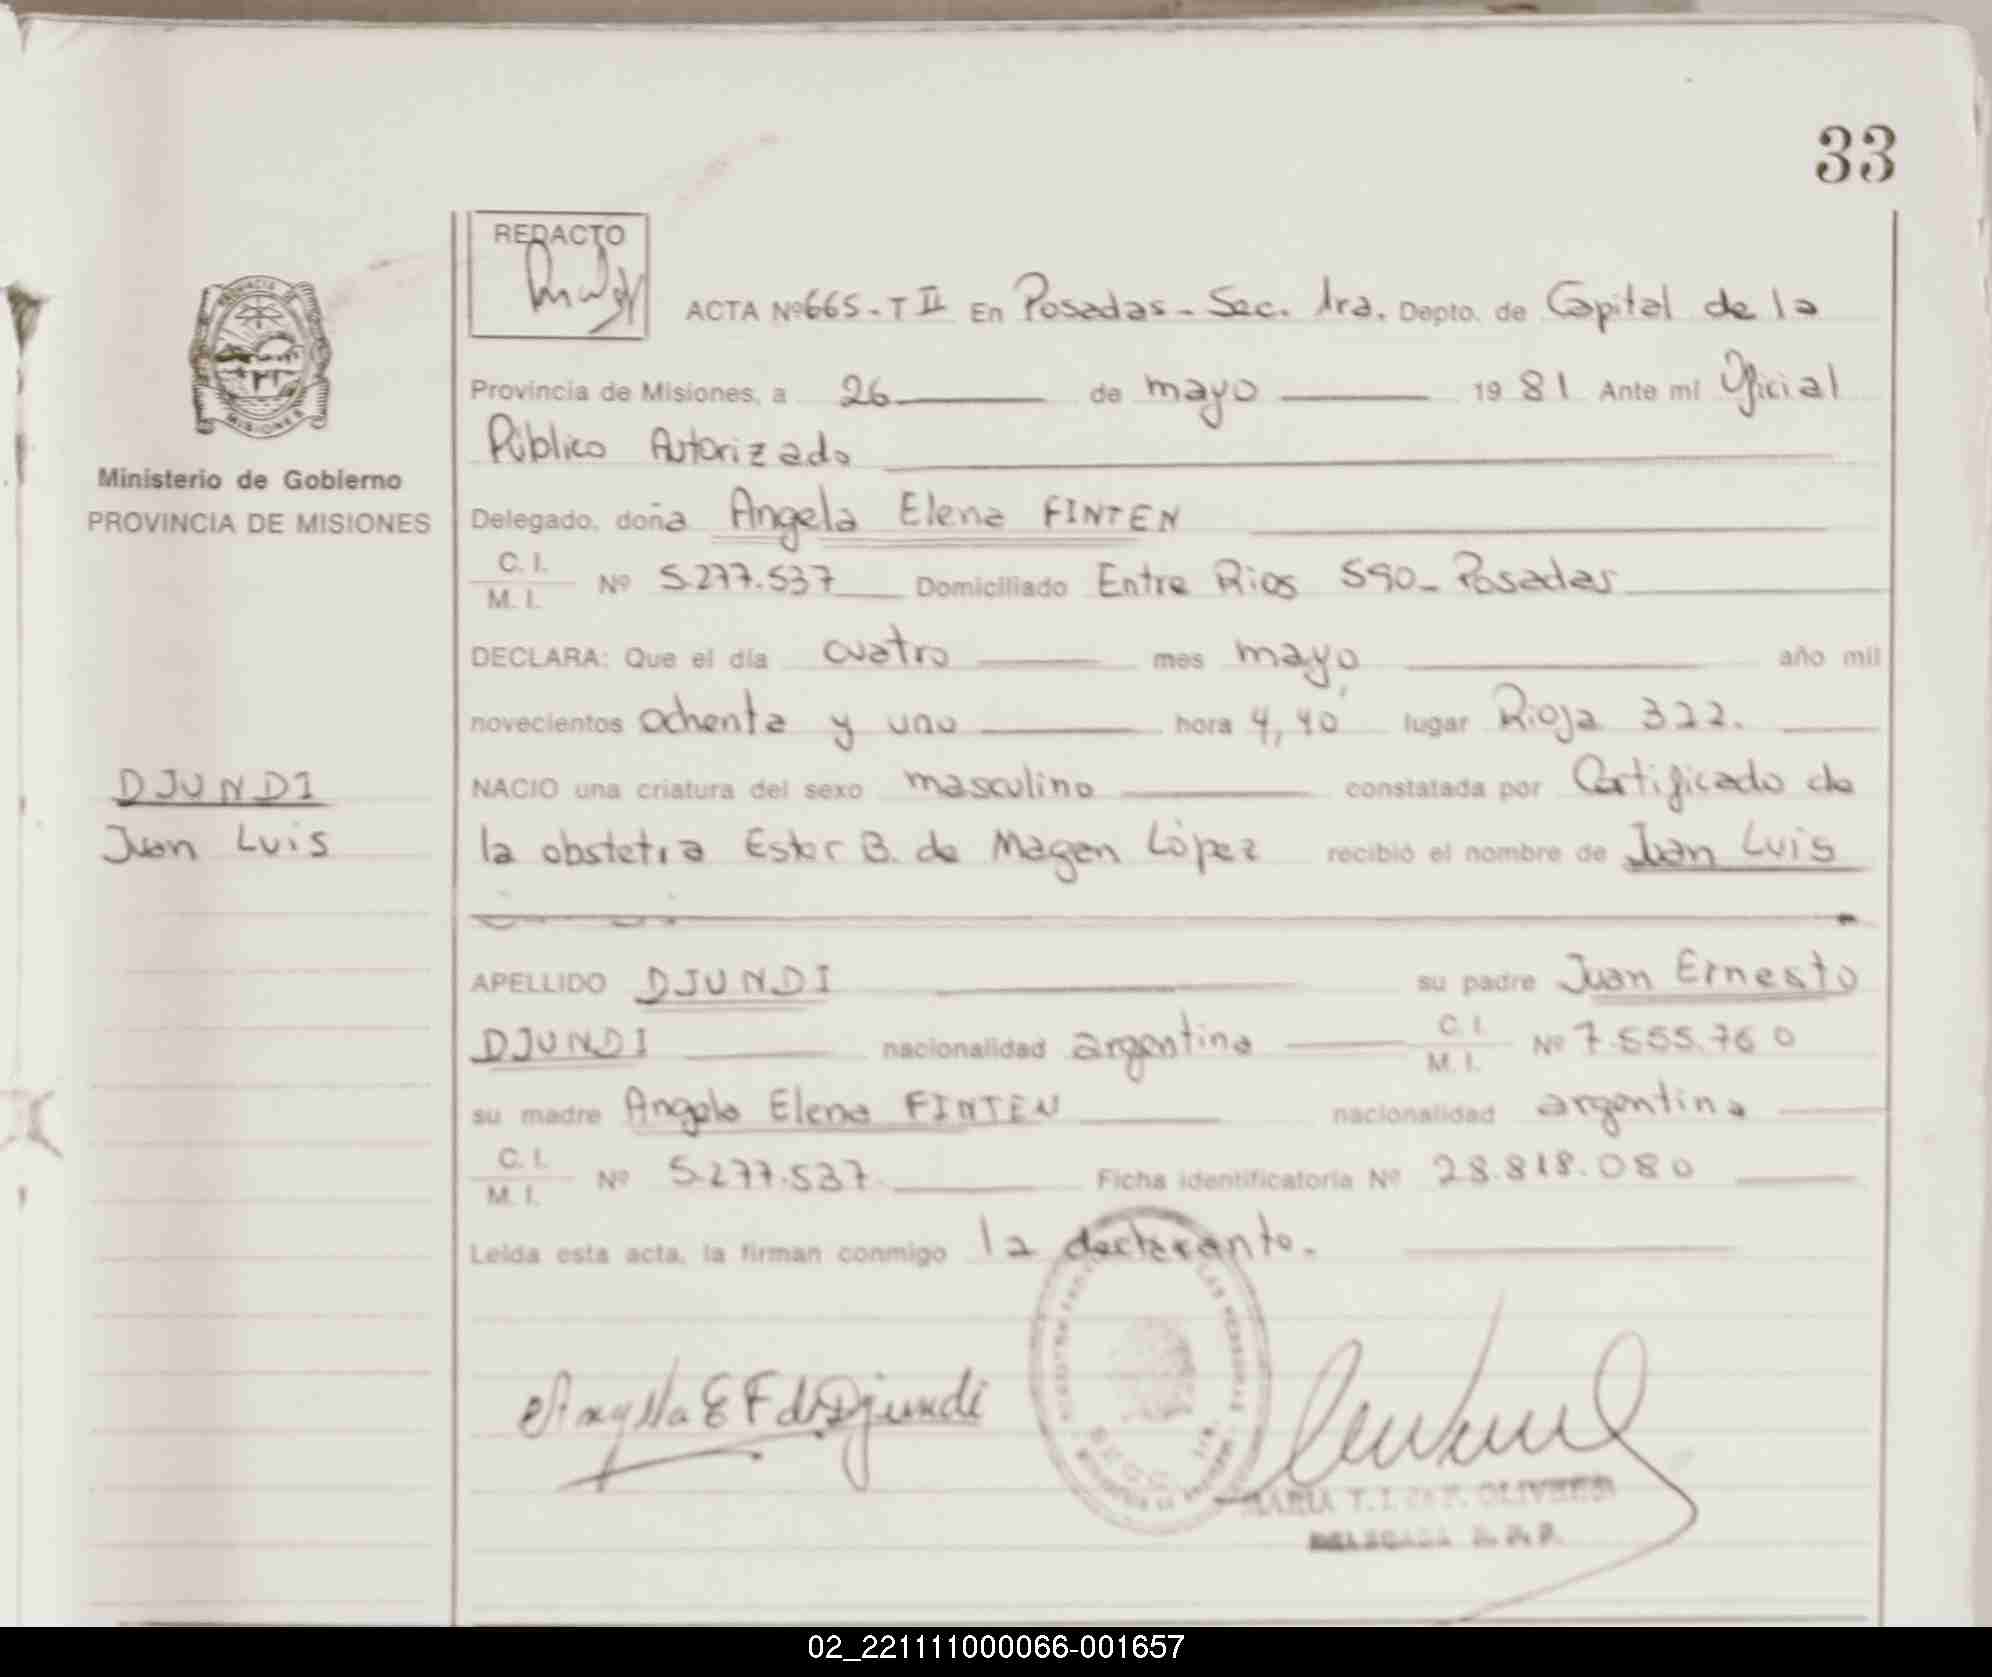 33
REDACTO
ACTA Nº 665 - T II En Posadas - Sec. 1ra. Depto. de Capital de la
PROVINCIA DE
MISIONES
Provincia de Misiones, a 26 de mayo 1981 Ante mí Oficial
Público Autorizado
Ministerio de Gobierno
PROVINCIA DE MISIONES
Delegado, doña Angela Elena FINTEN
C. I.
M. I. Nº 5.277.537 Domiciliado Entre Rios 590 - Posadas
DECLARA: Que el día cuatro mes mayo, año mil
novecientos ochenta y uno hora 4,40 lugar Rioja 322.
DJUNDI
Juan Luis
NACIO una criatura del sexo masculino constatada por Certificado de
la obstetra Ester B. de Magen López recibió el nombre de Juan Luis
APELLIDO DJUNDI su padre Juan Ernesto
DJUNDI nacionalidad argentina C. I.
M. I. Nº 7.555.760
su madre Angela Elena FINTEN nacionalidad argentina
C. I.
M. I. Nº 5.277.537 Ficha identificatoria Nº 28.818.080
Leída esta acta, la firman conmigo la declarante.
Angela E F de Djundi
MARIA T. I. OLIVERI
DELEGADA
02_221111000066-001657